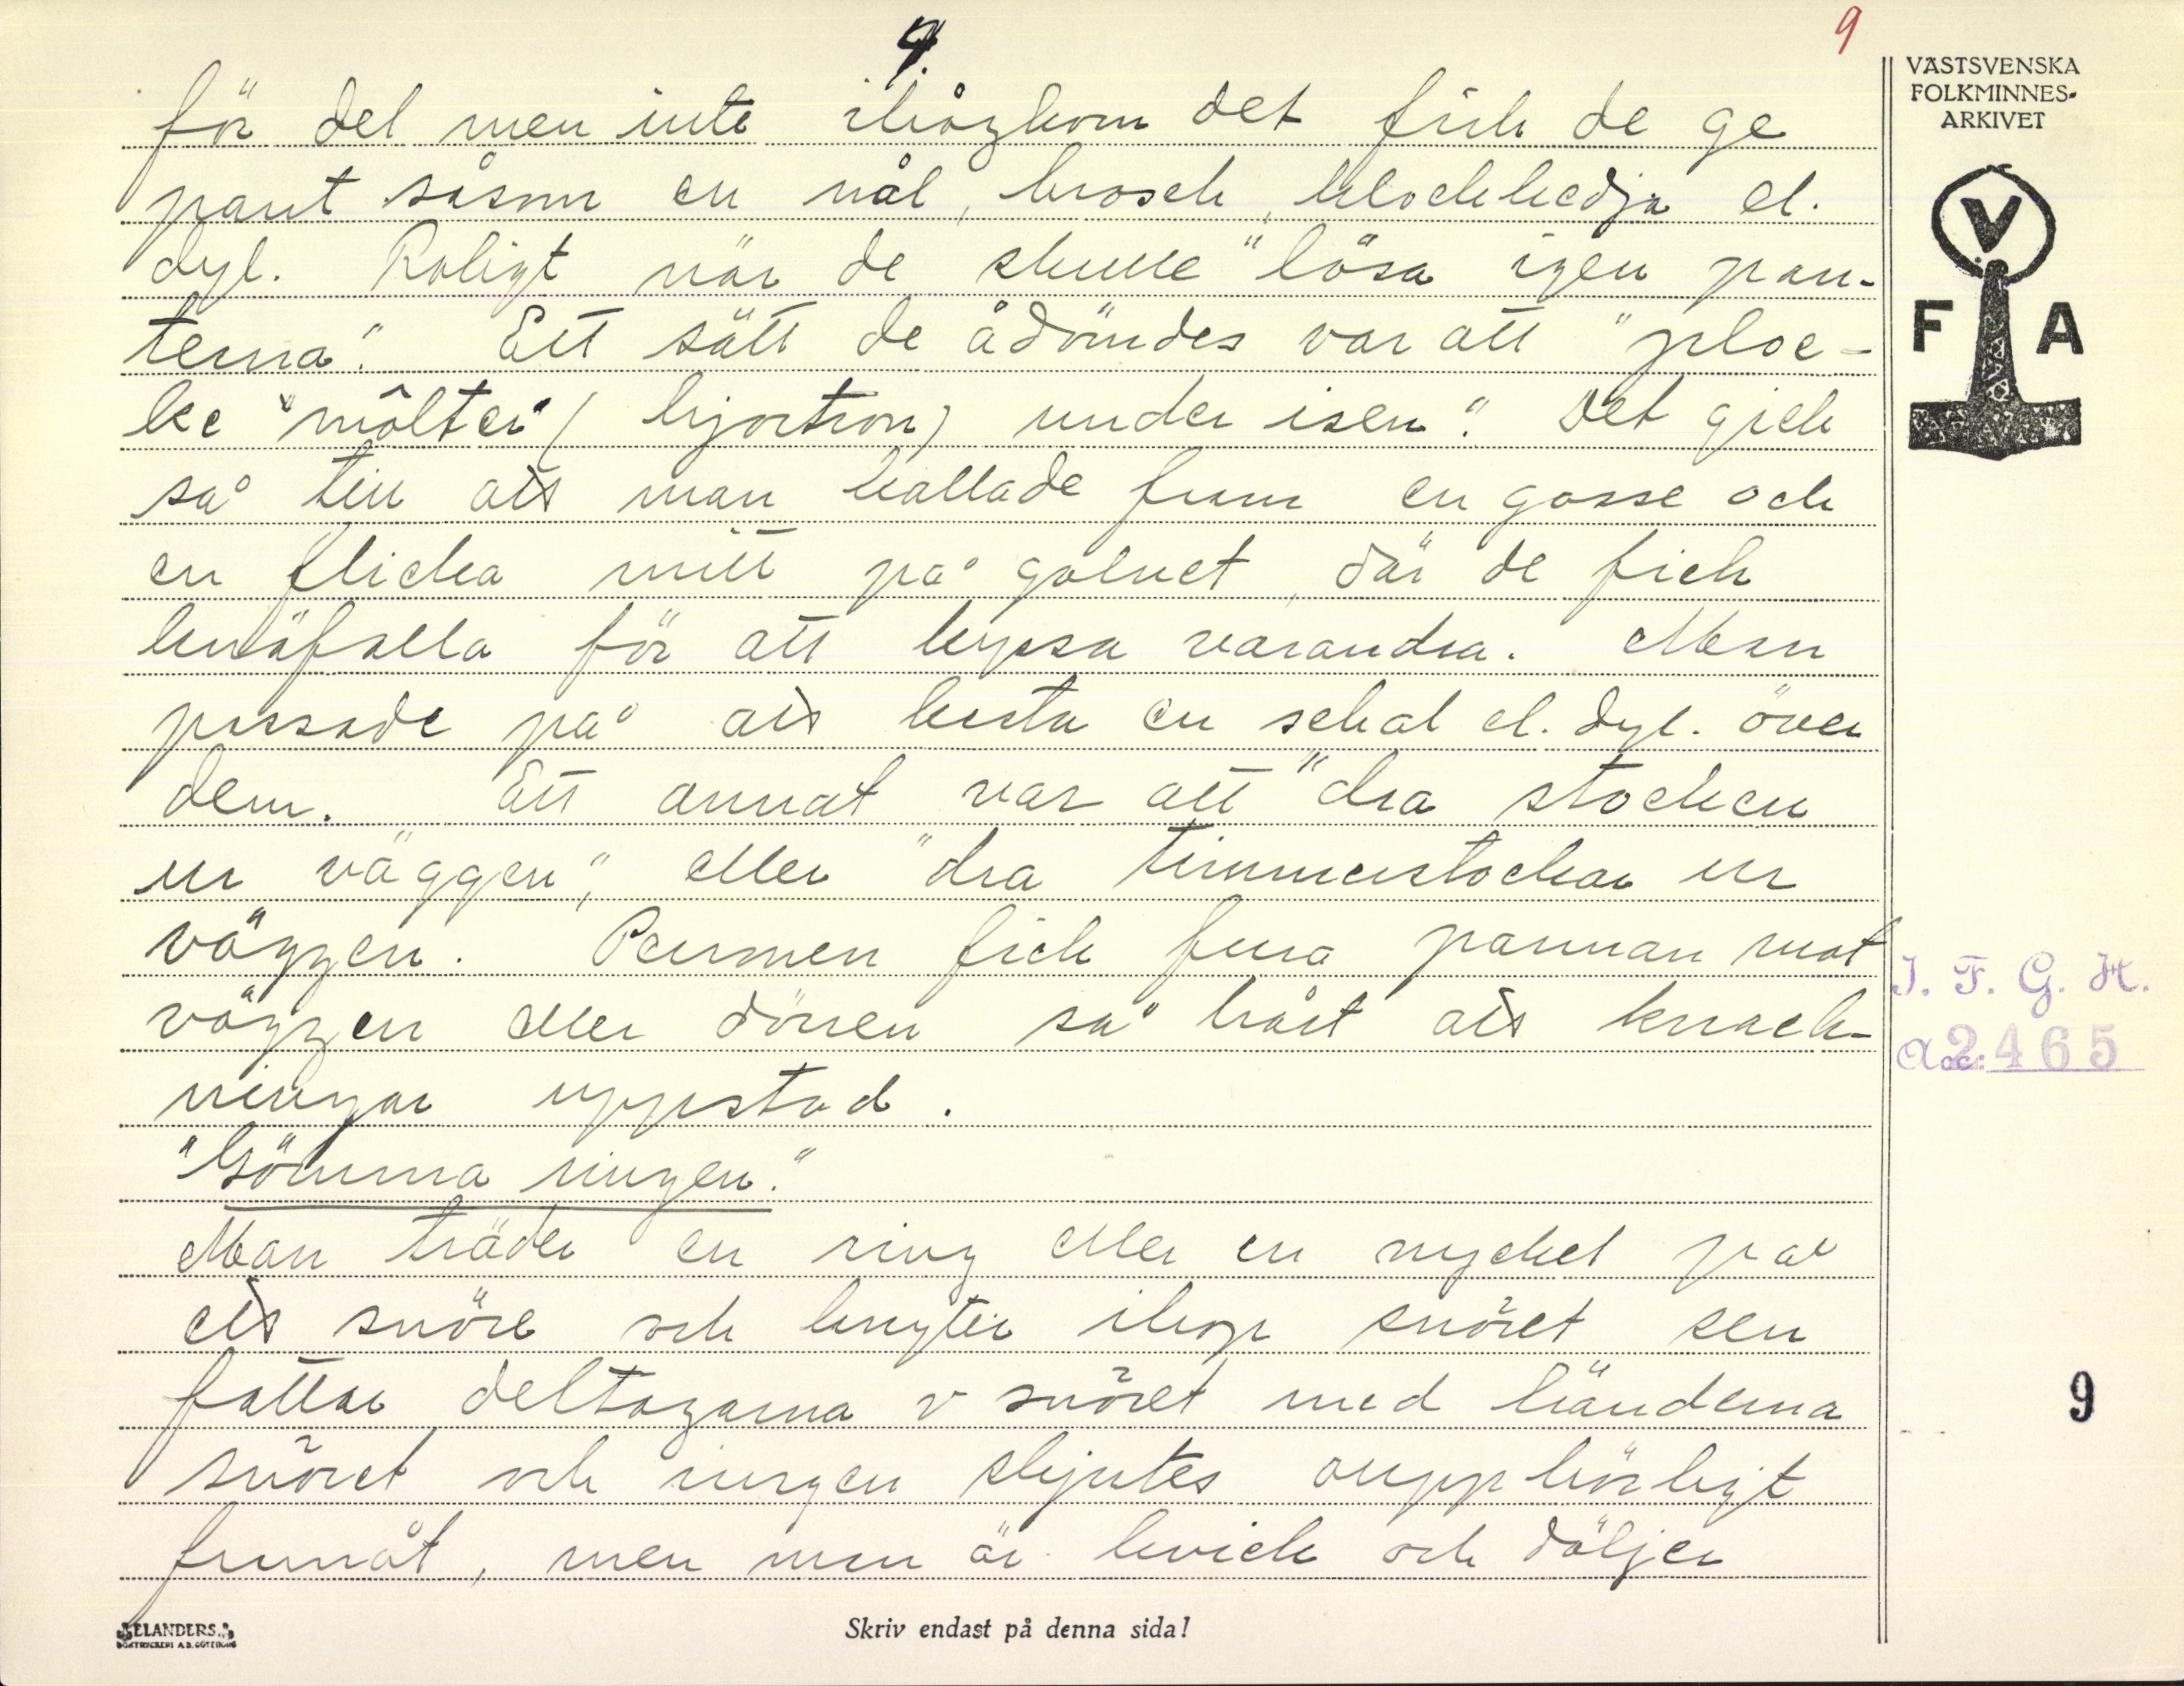 9.
9
VÄSTSVENSKA
FOLKMINNES-
ARKIVET
V
F A
för del men inte ihågkom det fick de ge
pant såsom en nål, brosch, klockkedja el.
dyl. Roligt när de skulle "lösa igen pan-
terna". Ett sätt de ådömdes var att "ploc-
ke "môlter" (hjortron) under isen". Det gick
så till att man kallade fram en gosse och
en flicka mitt på golvet, där de fick
knäfalla för att kyssa varandra. Man
passade på att kasta en schal el. dyl. över
dem. Ett annat var att "dra stocken
ur väggen", eller "dra timmerstockar ur
väggen. Personen fick fura pannan mot
väggen eller dörren så hårt att knack-
ningar uppstod.
"Gömma ringen."
Man träder en ring eller en nyckel på
ett snöre och knyter ihop snöret sen
fattar deltagarna v snöret med händerna
snöret och ringen skjutes oupphörligt
framåt, men man är kvick och döljer
I. F. G. H.
Acc: 2465
9
ELANDERS
BOKTRYCKERI A.B. GÖTEBORG
Skriv endast på denna sida!